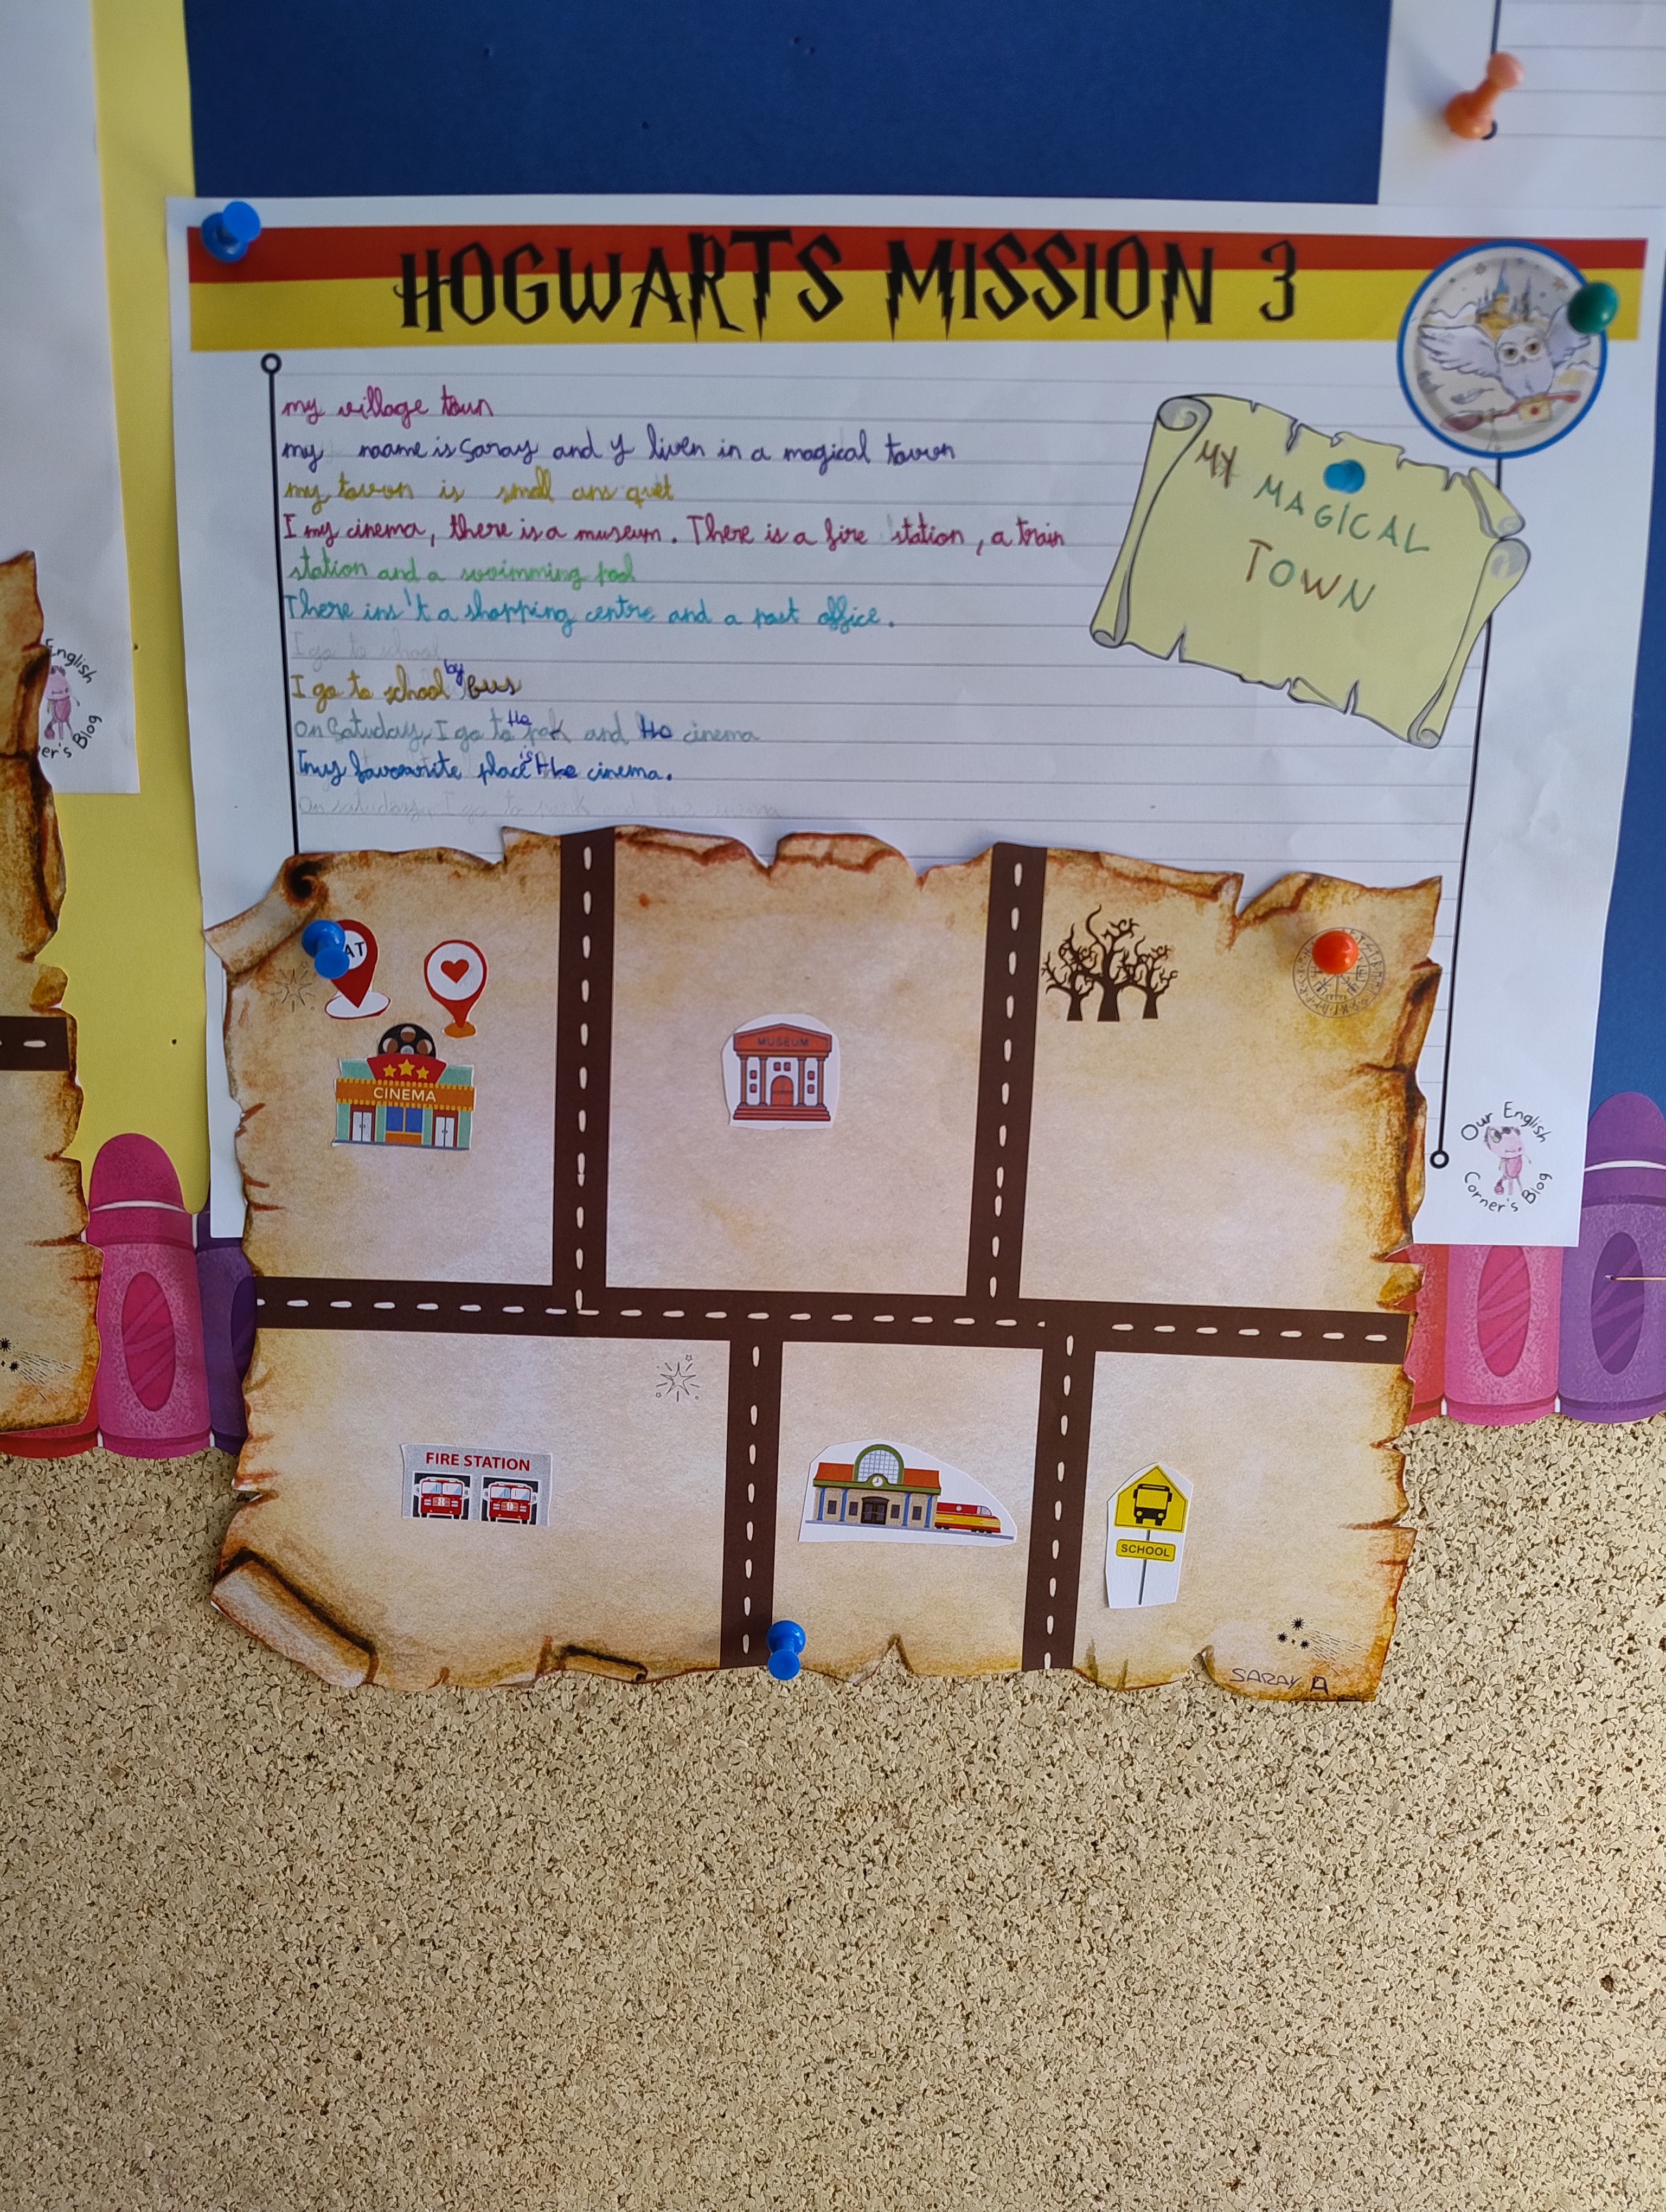 HOGWARTS MISSION 3
my village toun
my naame is Saray and y liven in a magical tovon
my tovon is small ans quet
I my cinema, there is a museum. There is a fire station, a train
station and a swimming pool
There ins't a shopping centre and a post office.
I go to school
I go to school by Bus
On Satuday, I go to the pak and the cinema
Imy favourite place is the cinema.
On satuday, I go to park and the cinema
MY MAGICAL
TOWN
AT
CINEMA
MUSEUM
FIRE STATION
SCHOOL
SARAY A
Our English
Corner's Blog
English
er's Blog